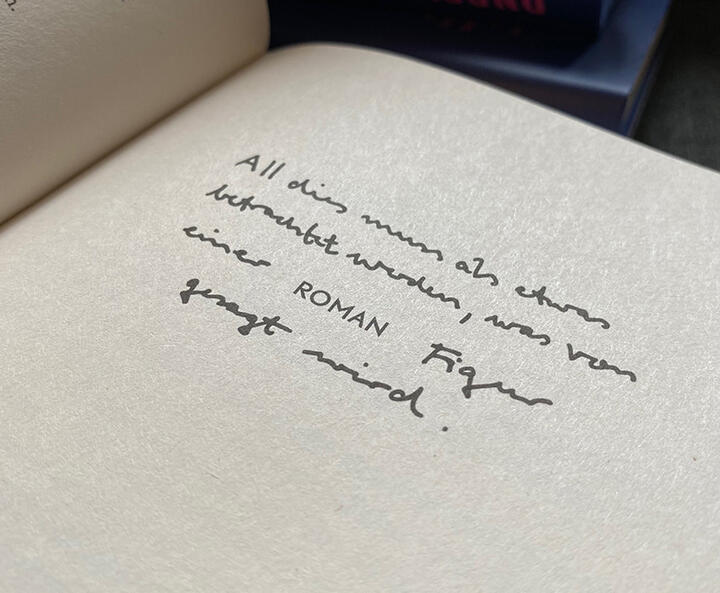 All dies muss als etwas
betrachtet werden, was von
einer ROMAN Figur
gesagt wird.